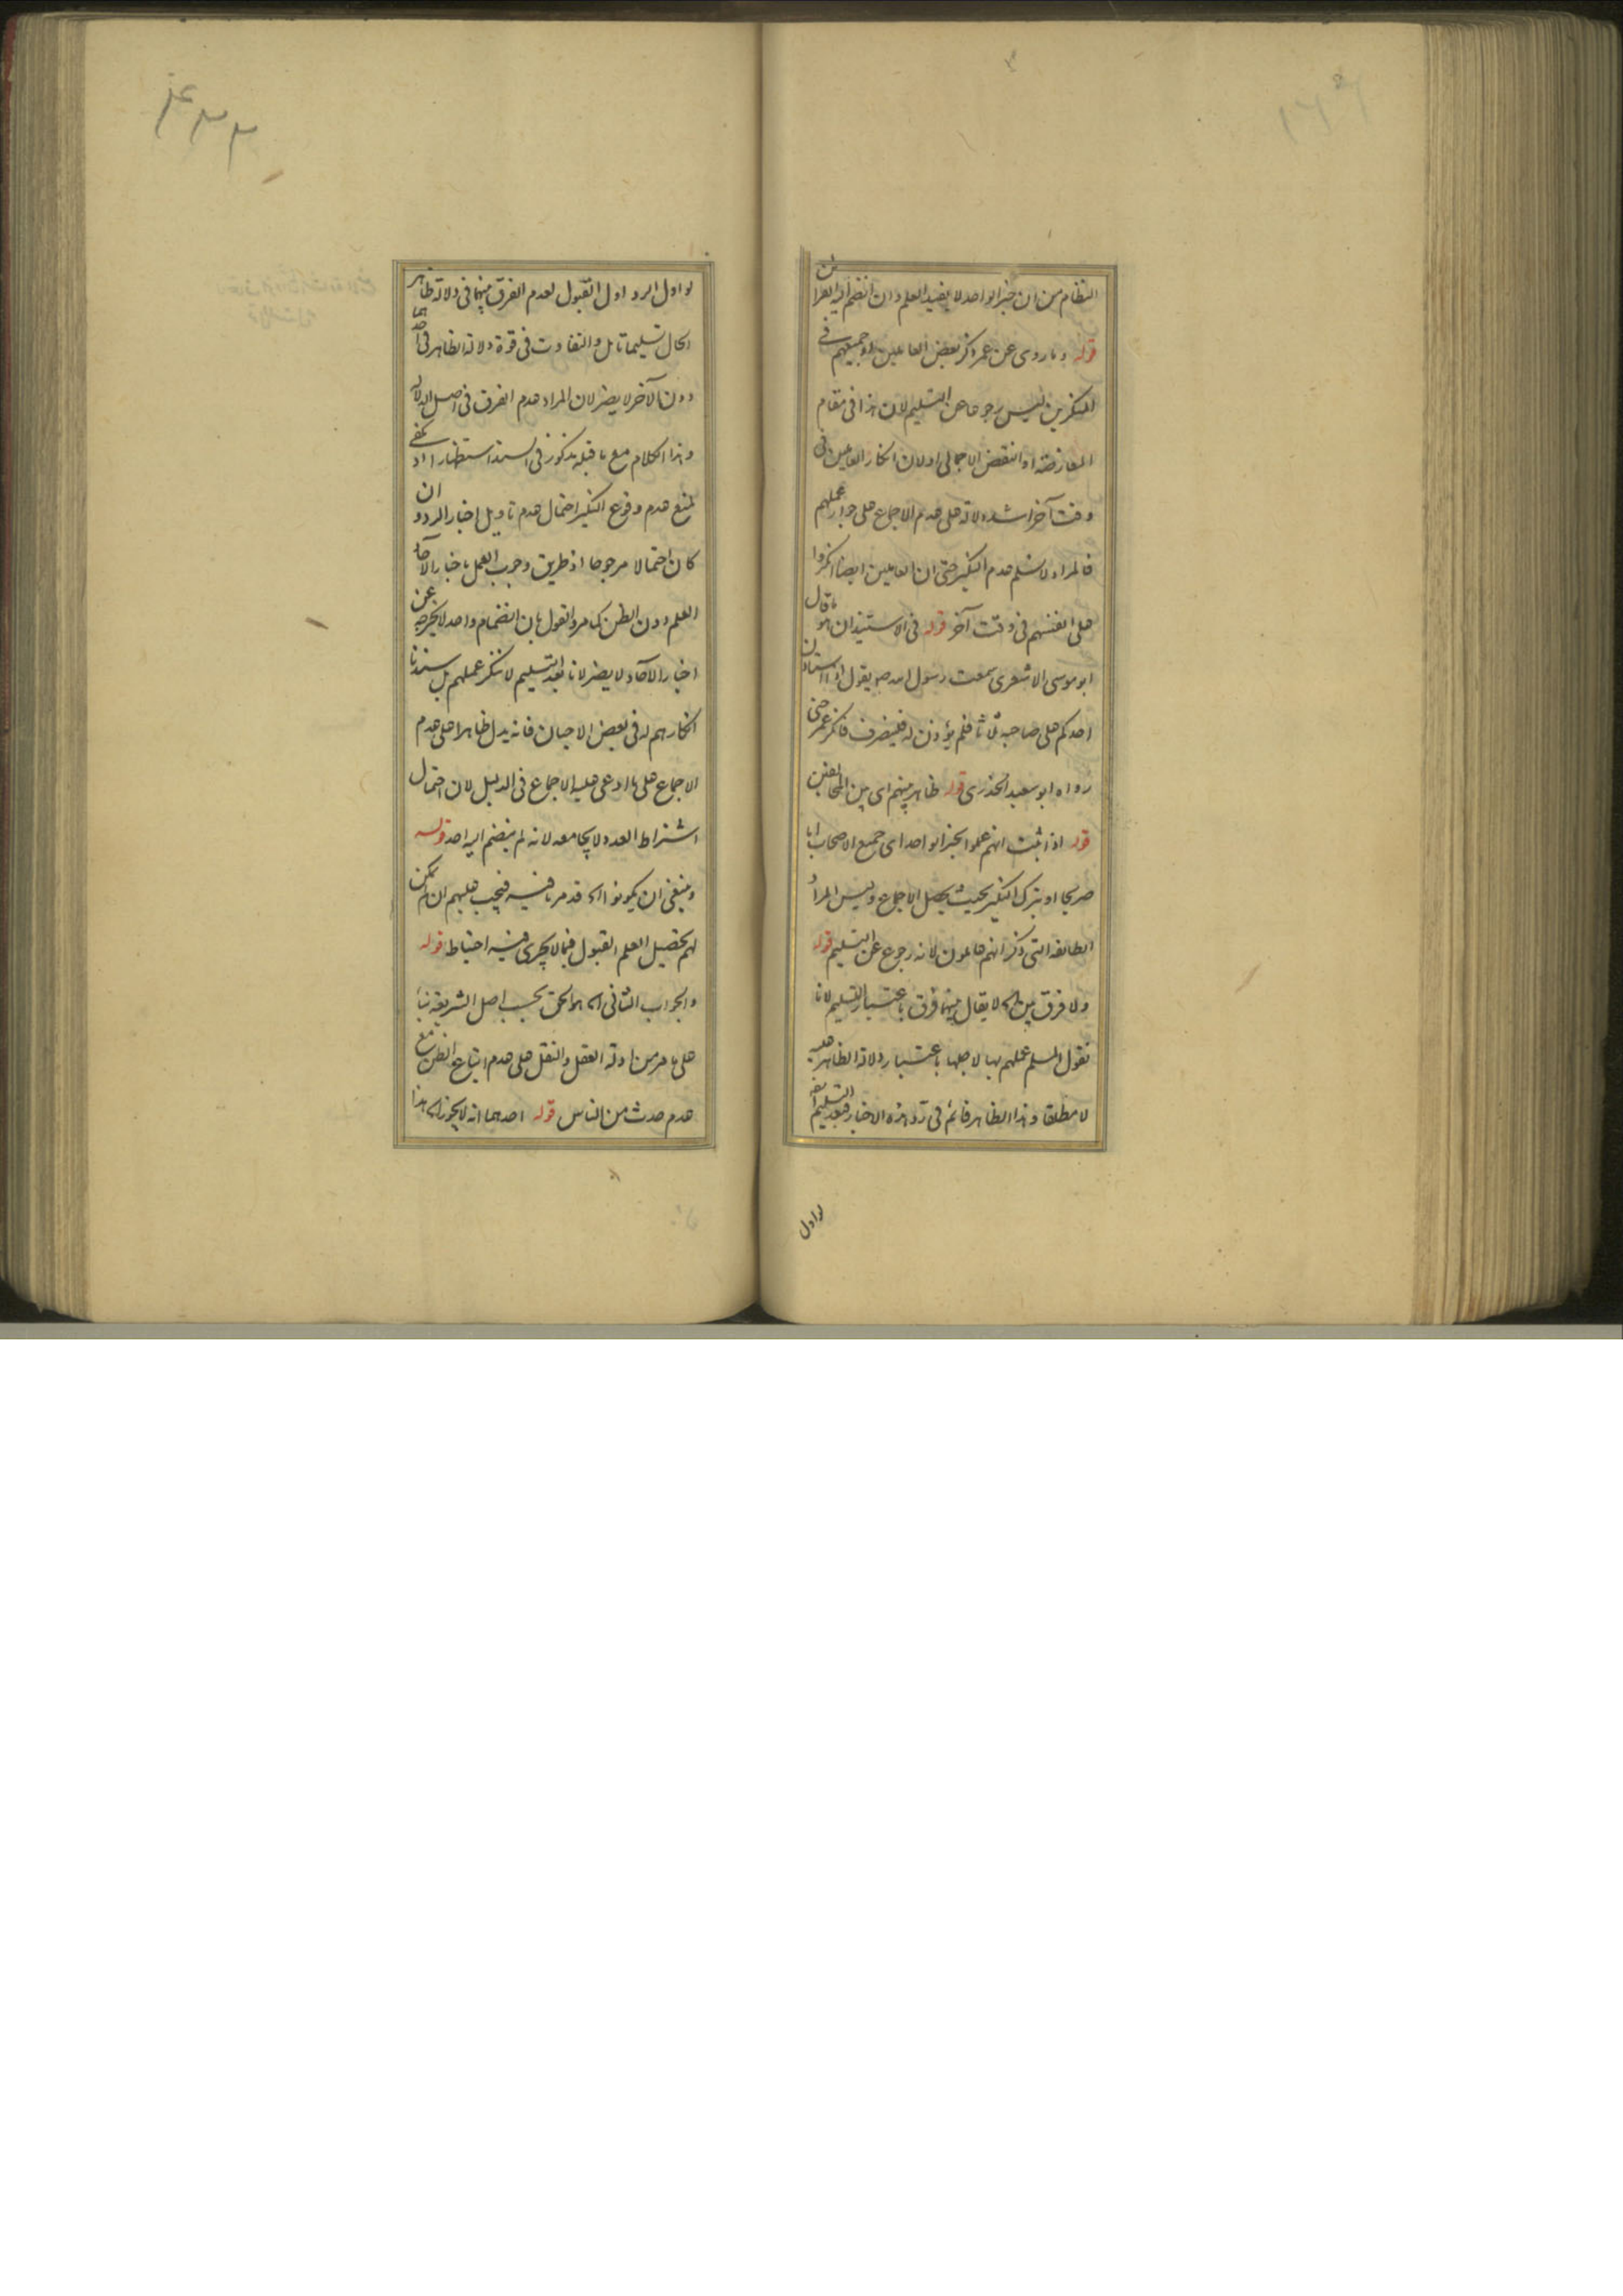 النظام من ان خبر الواحد لا يفيد العلم وان انضم اليه القرائن
قوله وما روى عن عمر ذكر بعض العاملين او جميعهم في
المنكرين ليس رجوعا عن التسليم لان هذا في مقام
المعارضة او النقض الاجمالى اولان انكار العاملين في
وقت آخر اشد دلالة على عدم الاجماع على جواز عملهم
فالمراد لا نسلم عدم النكير حتى ان العاملين ايضا انكروا
على انفسهم فى وقت آخر قوله فى الاستيذان هو ما قال
ابو موسى الاشعرى سمعت رسول الله ص يقول اذا استاذن
احدكم على صاحبه ثلاثا فلم يؤذن له فلينصرف فانكر عمر حتى
رواه ابو سعيد الخدرى قوله ظاهر بينهم اى بين المخالفين
قوله اذا ثبت انهم عملوا بخبر الواحد اى جميع الاصحاب اما
صريحا او بترك النكير بحيث يحصل الاجماع وليس المراد
الطائفة التى ذكر انهم عاملون لانه رجوع عن التسليم قوله
ولا فرق بين الخ لا يقال بينهما فرق باعتبار التسليم لانا
نقول المسلم عملهم بها لاجلها باعتبار دلالة الظاهر عليه
لا مطلقا وهذا الظاهر قائم فى رد هذه الاخبار فبعد التسليم
لو اول
لو اول الرد اول القبول لعدم الفرق بينهما فى دلالة ظاهر
الحال تسليما تامل والتفاوت فى قوة دلالة الظاهر فى احدهما
دون الآخر لا يضر لان المراد عدم الفرق فى اصل الدلالة
وهذا الكلام مع ما قبله مذكور فى السند استظهارا اذ يكفى
لمنع عدم وقوع النكير احتمال عدم تاويل اخبار الرد وان
كان احتمالا مرجوحا اذ طريق وجوب العمل باخبار الآحاد
العلم دون الظن كما مر والقول بان انضمام واحد لا يخرجه عن
اخبار الآحاد لا يضر لانا بعد التسليم لا ننكر عملهم بل سندنا
انكارهم له فى بعض الاحيان فانه يدل ظاهرا على عدم
الاجماع على ما ادعى عليه الاجماع فى الدليل لان احتمال
اشتراط العدد لا يجامعه لانه لم ينضم اليه احد قوله
وينبغى ان يكونوا الخ قد مر ما فيه فيجب عليهم ان لم يمكن
لهم تحصيل العلم القبول فيما لا يجرى فيه احتياط قوله
والجواب الثانى الخ هو الحق بحسب اصل الشريعة بناء
على ما مر من ادلة العقل والنقل على عدم اتباع الظن مع
عدم حدث من الناس قوله احدهما انه لا يجوز الخ هذا